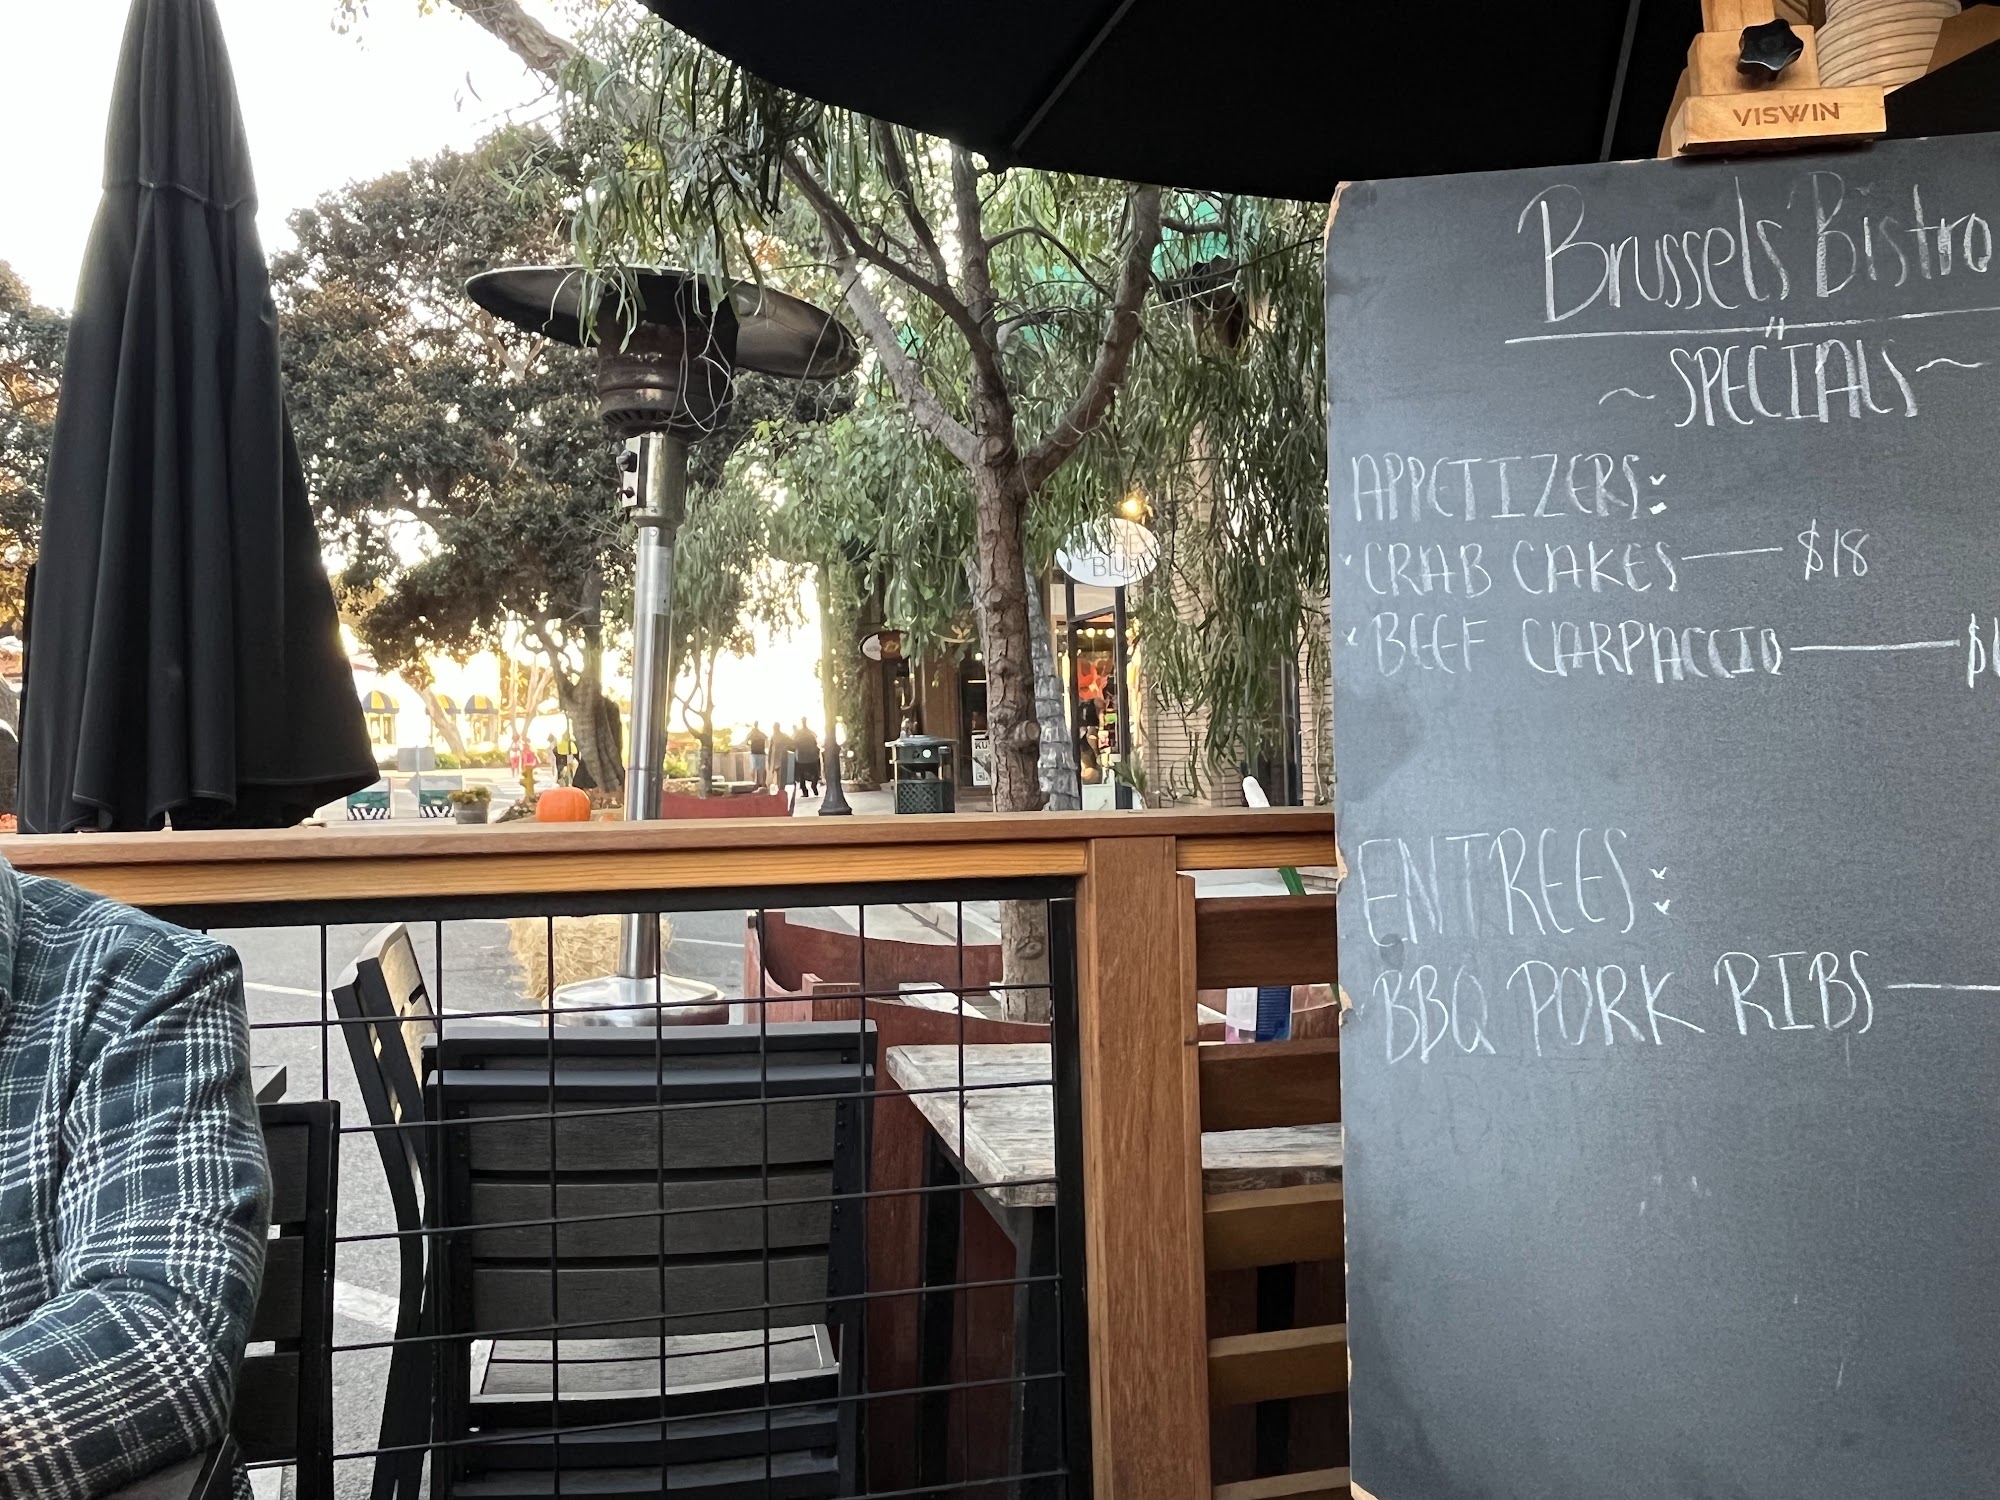 VISWIN
Brussels' Bistro
~ SPECIALS ~
APPETIZERS:
CRAB CAKES — $18
BEEF CARPACCIO — $
ENTREES:
BBQ PORK RIBS —
BLUE